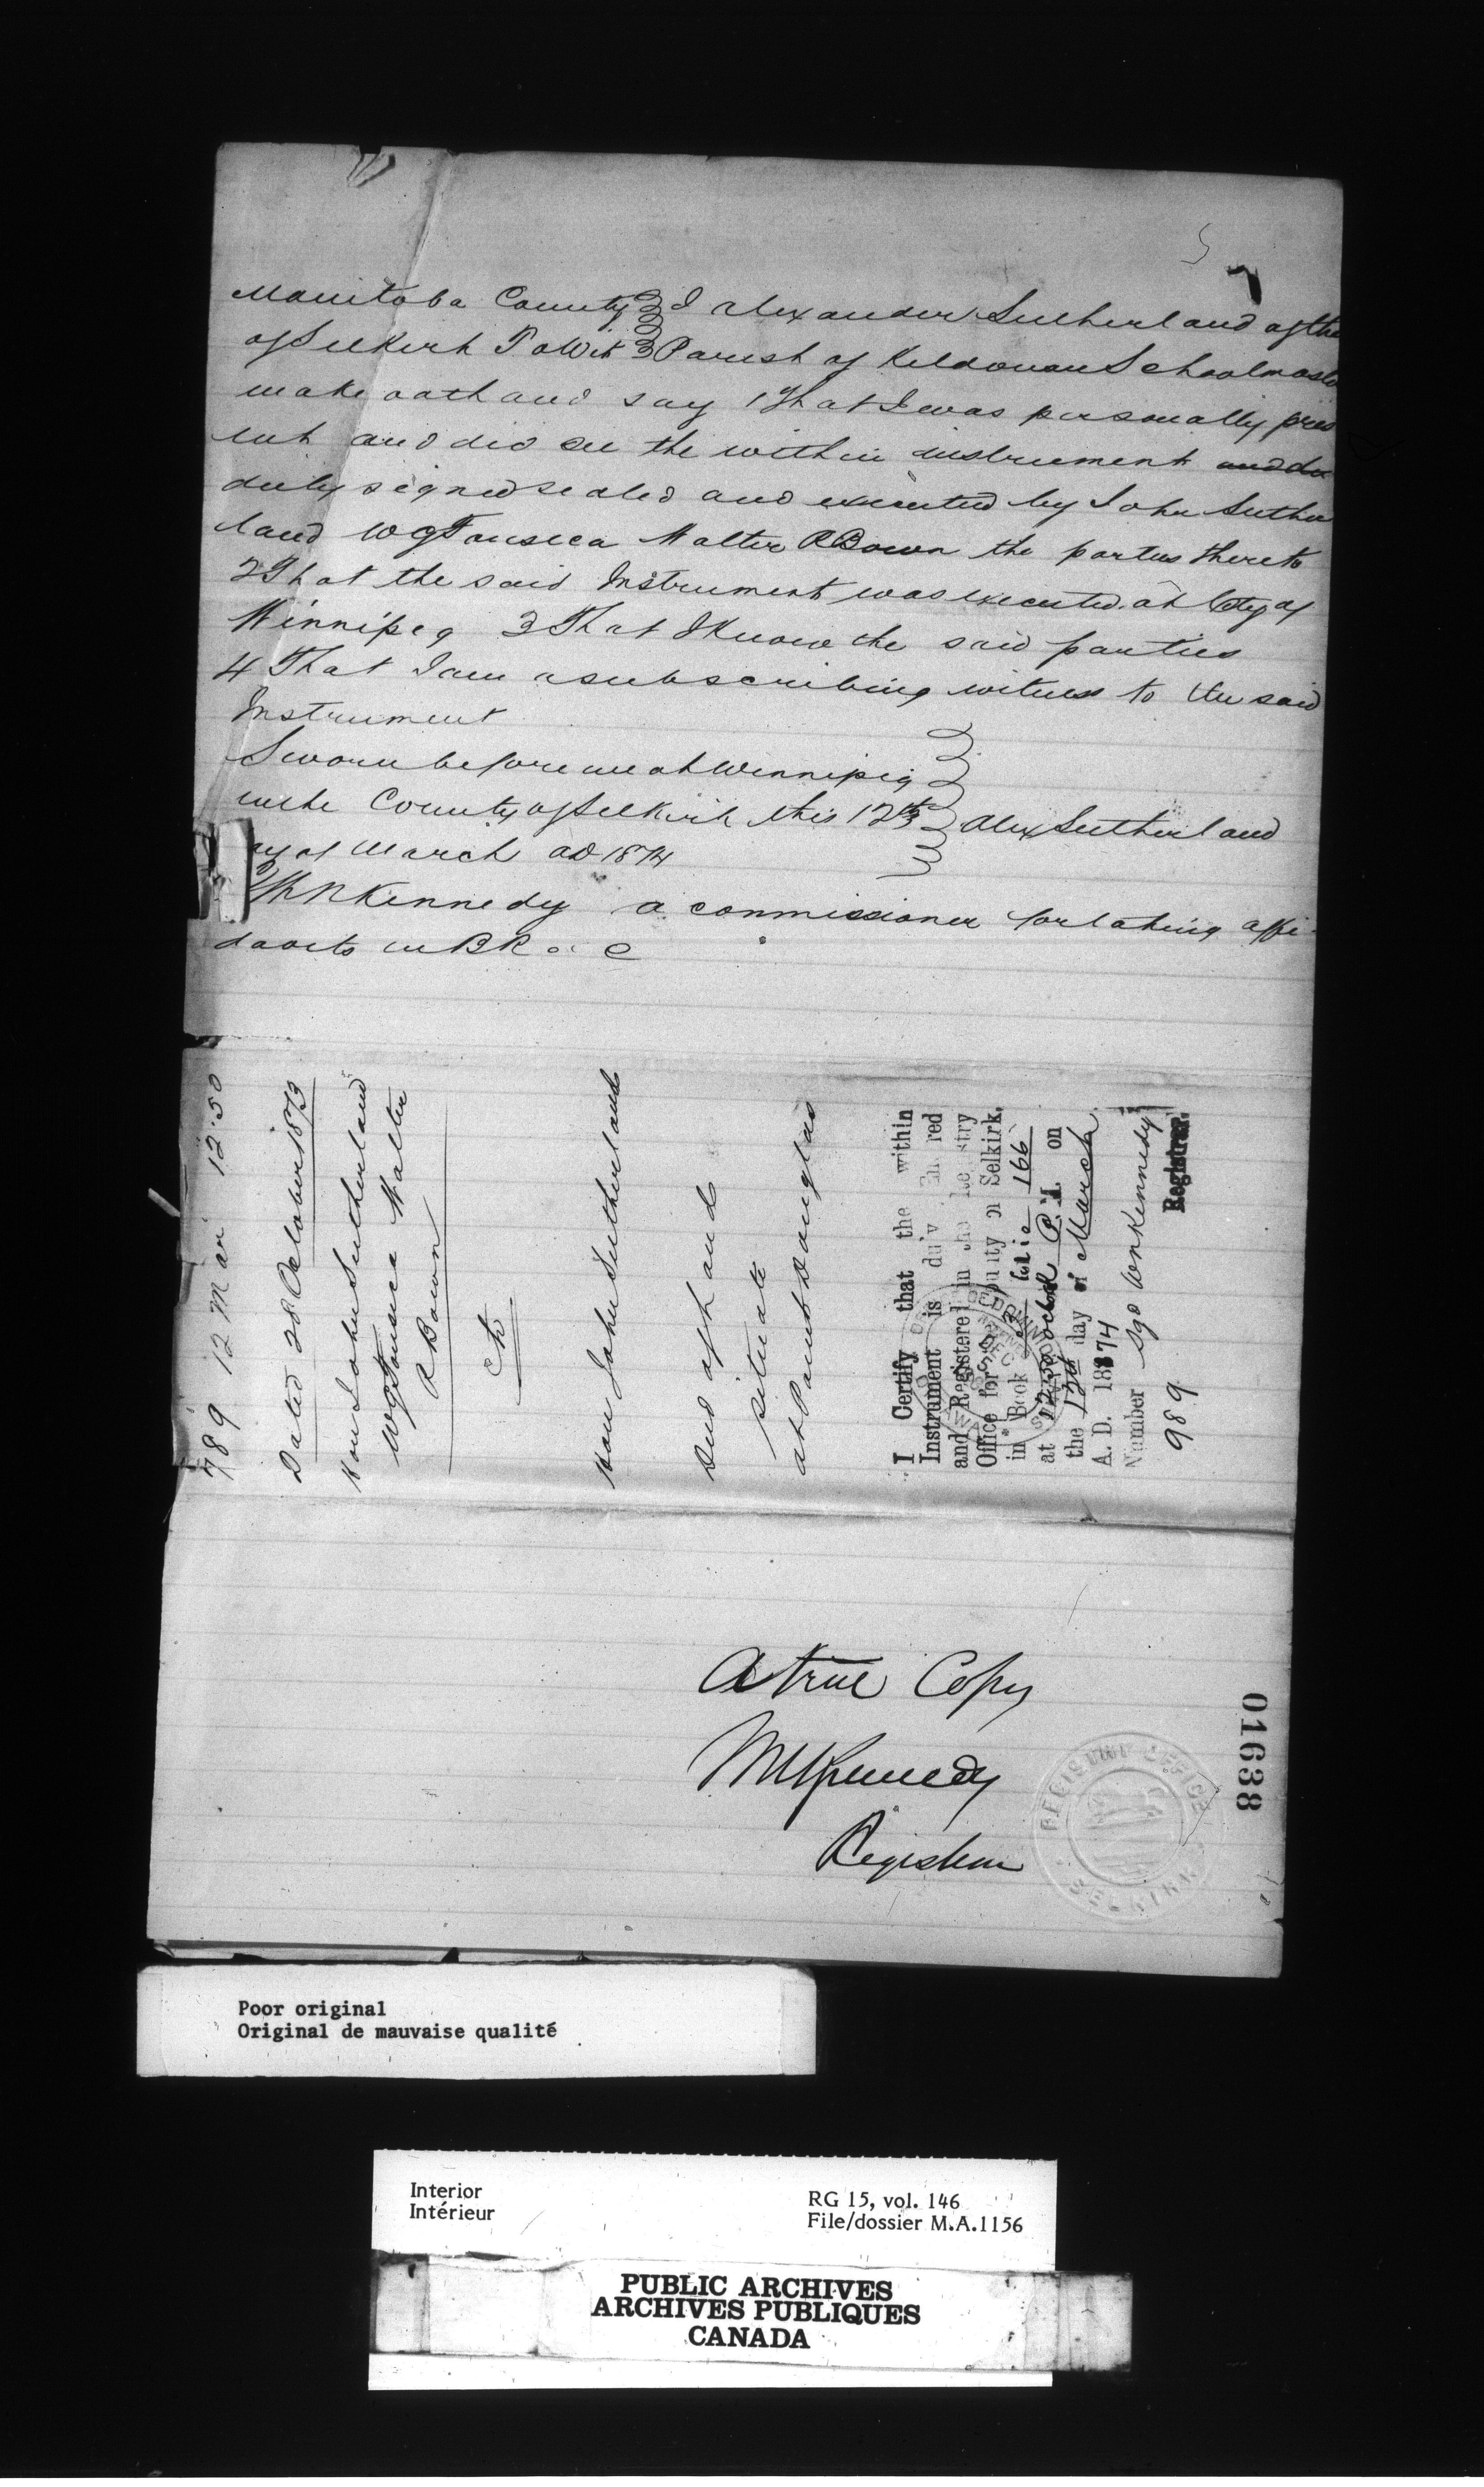 7
Manitoba County } I Alexander Sutherland of the
of Selkirk To Wit } Parish of Kildonan Schoolmaste
make oath and say 1 That I was personally pres
ent and did see the within instrument
duly signed sealed and executed by John Suther
land WG Fonseca Walter R Bown the parties thereto
2 That the said Instrument was executed at City of
Winnipeg 3 That I know the said parties
4 That I am a subscribing witness to the said
Instrument
Sworn before me at Winnipeg
in the County of Selkirk this 12th } Alex Sutherland
ay of March AD 1874
WN Kennedy a commissioner for taking affi
davits in BR & c
789 12 Mar 12.50
Dated 28 October 1873
Hon John Sutherland
WG Fonseca Walter
R Bown
Hon John Sutherland
Deed of Land
situate
at Point Douglas
I Certify that the within
Instrument is duly Entered
and Registered in the Registry
Office for the County of Selkirk.
in Book folio 166
at 12.50 oclock P.M. on
the 12th day of March
A. D. 1874
Number Sgd WN Kennedy
989 Registrar.
A true Copy
WN Kennedy
Registrar
REGISTRY OFFICE
SELKIRK
01638
Poor original
Original de mauvaise qualité
Interior
Intérieur
RG 15, vol. 146
File/dossier M.A.1156
PUBLIC ARCHIVES
ARCHIVES PUBLIQUES
CANADA